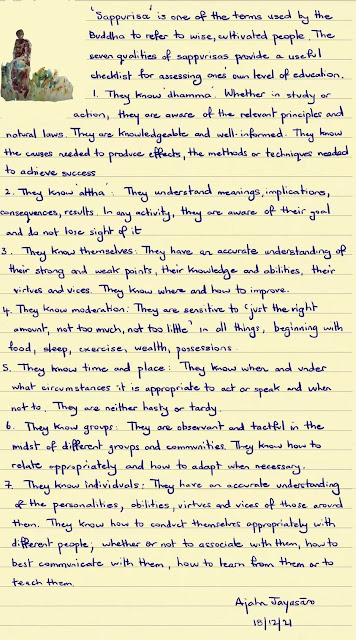 'Sappurisa' is one of the terms used by the
Buddha to refer to wise, cultivated people. The
seven qualities of sappurisas provide a useful
checklist for assessing ones own level of education.
1. They know 'dhamma': Whether in study or
action, they are aware of the relevant principles and
natural laws. They are knowledgeable and well-informed. They know
the causes needed to produce effects, the methods or techniques needed
to achieve success
2. They know 'attha': They understand meanings, implications,
consequences, results. In any activity, they are aware of their goal
and do not lose sight of it
3. They know themselves: They have an accurate understanding of
their strong and weak points, their knowledge and abilities, their
virtues and vices. They know where and how to improve.
4. They know moderation: They are sensitive to 'just the right
amount, not too much, not too little' in all things, beginning with
food, sleep, exercise, wealth, possessions.
5. They know time and place: They know when and under
what circumstances it is appropriate to act or speak and when
not to. They are neither hasty or tardy.
6. They know groups: They are observant and tactful in the
midst of different groups and communities. They know how to
relate appropriately and how to adapt when necessary.
7. They know individuals: They have an accurate understanding
of the personalities, abilities, virtues and vices of those around
them. They know how to conduct themselves appropriately with
different people; whether or not to associate with them, how to
best communicate with them, how to learn from them or to
teach them.
Ajahn Jayasāro
18/12/21